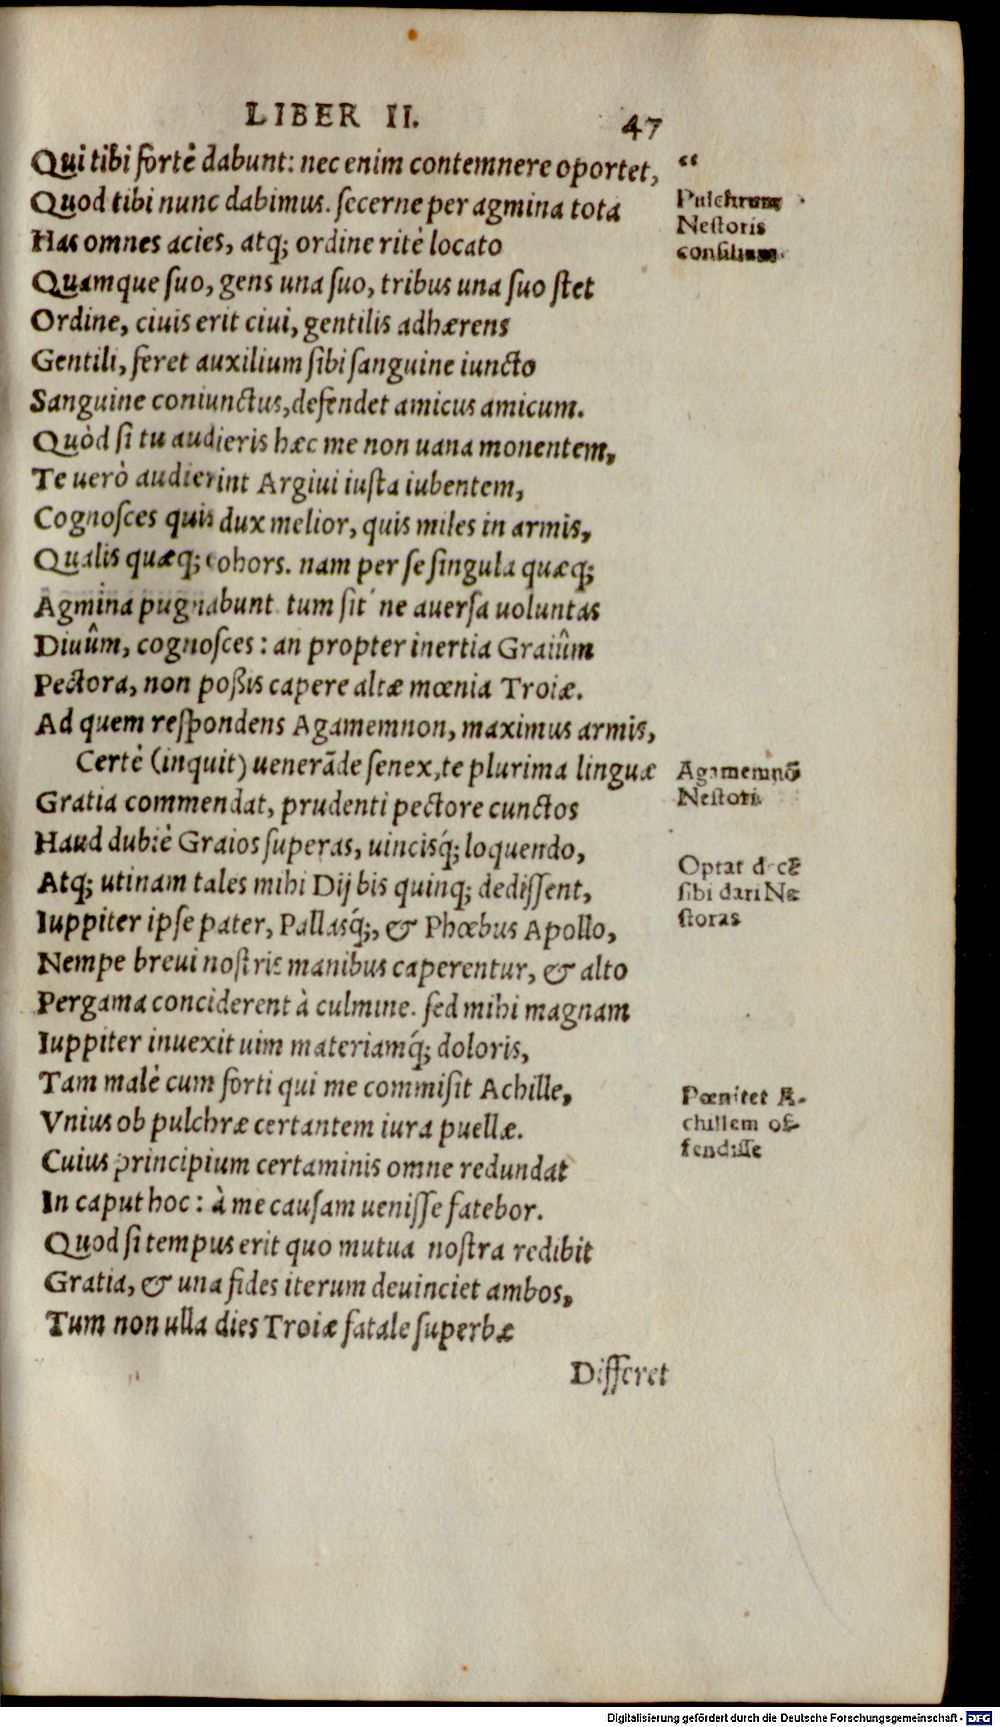 LIBER II. 47
Qui tibi fortè dabunt: nec enim contemnere oportet, “
Quod tibi nunc dabimus. secerne per agmina tota
Has omnes acies, atq; ordine ritè locato
Quamque suo, gens una suo, tribus una suo stet
Ordine, ciuis erit ciui, gentilis adhærens
Gentili, feret auxilium sibi sanguine iuncto
Sanguine coniunctus, defendet amicus amicum.
Quòd si tu audieris hæc me non uana monentem,
Te uerò audierint Argiui iusta iubentem,
Cognosces quis dux melior, quis miles in armis,
Qualis quæq; cohors. nam per se singula quæq;
Agmina pugnabunt tum sit ne auersa uoluntas
Diuûm, cognosces: an propter inertia Graiûm
Pectora, non poßis capere altæ mœnia Troiæ.
Ad quem respondens Agamemnon, maximus armis,
Certè (inquit) uenerāde senex, te plurima linguæ
Gratia commendat, prudenti pectore cunctos
Haud dubiè Graios superas, uincisq́; loquendo,
Atq; utinam tales mihi Dij bis quinq; dedissent,
Iuppiter ipse pater, Pallasq́;, & Phœbus Apollo,
Nempe breui nostris manibus caperentur, & alto
Pergama conciderent à culmine. sed mihi magnam
Iuppiter inuexit uim materiamq́; doloris,
Tam malè cum forti qui me commisit Achille,
Vnius ob pulchræ certantem iura puellæ.
Cuius principium certaminis omne redundat
In caput hoc: à me causam uenisse fatebor.
Quod si tempus erit quo mutua nostra redibit
Gratia, & una fides iterum deuinciet ambos,
Tum non ulla dies Troiæ fatale superbæ
Differet
Pulchrum
Nestoris
consilium.
Agamemnō
Nestori.
Optat decē
sibi dari Ne
storas
Pœnitet A-
chillem of-
fendisse
Digitalisierung gefördert durch die Deutsche Forschungsgemeinschaft - DFG